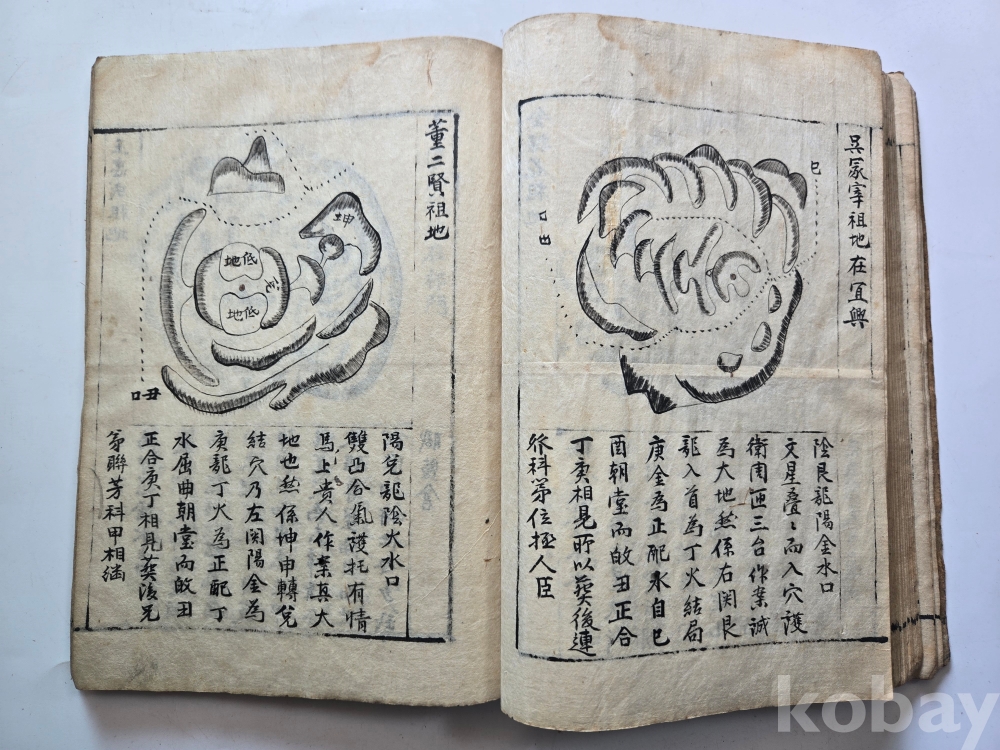 吳冢宰祖地在宜興
巳
口
丑
陰艮龍陽金水口
文星疊〻而入穴護
衛周匝三台作業誠
為大地然係右関艮
龍入首為丁火結局
庚金為正配水自巳
酉朝堂而放丑正合
丁庚相見所以葬後連
登科第位極人臣
董二賢祖地
坤
低地
穴
低地
口丑
陽兌龍陰火水口
雙凸合氣護托有情
馬上貴人作案真大
地也然係坤申轉兌
結穴乃左関陽金為
庚龍丁火為正配丁
水屈曲朝堂而放丑
正合庚丁相見葬後兄
弟聯芳科甲相繼
kobay